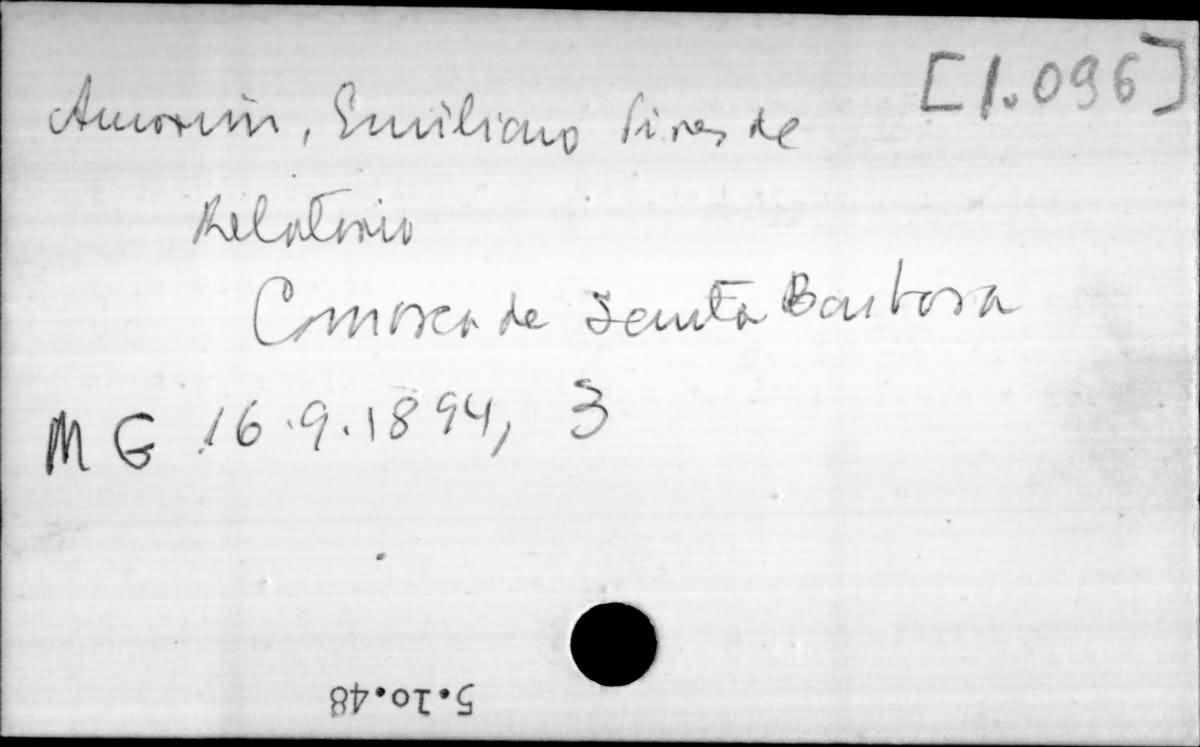 [1.096]
Amorim, Emiliano Pires de
Relatorio
Comarca de Santa Barbara
MG 16.9.1894, 3
5.10.48